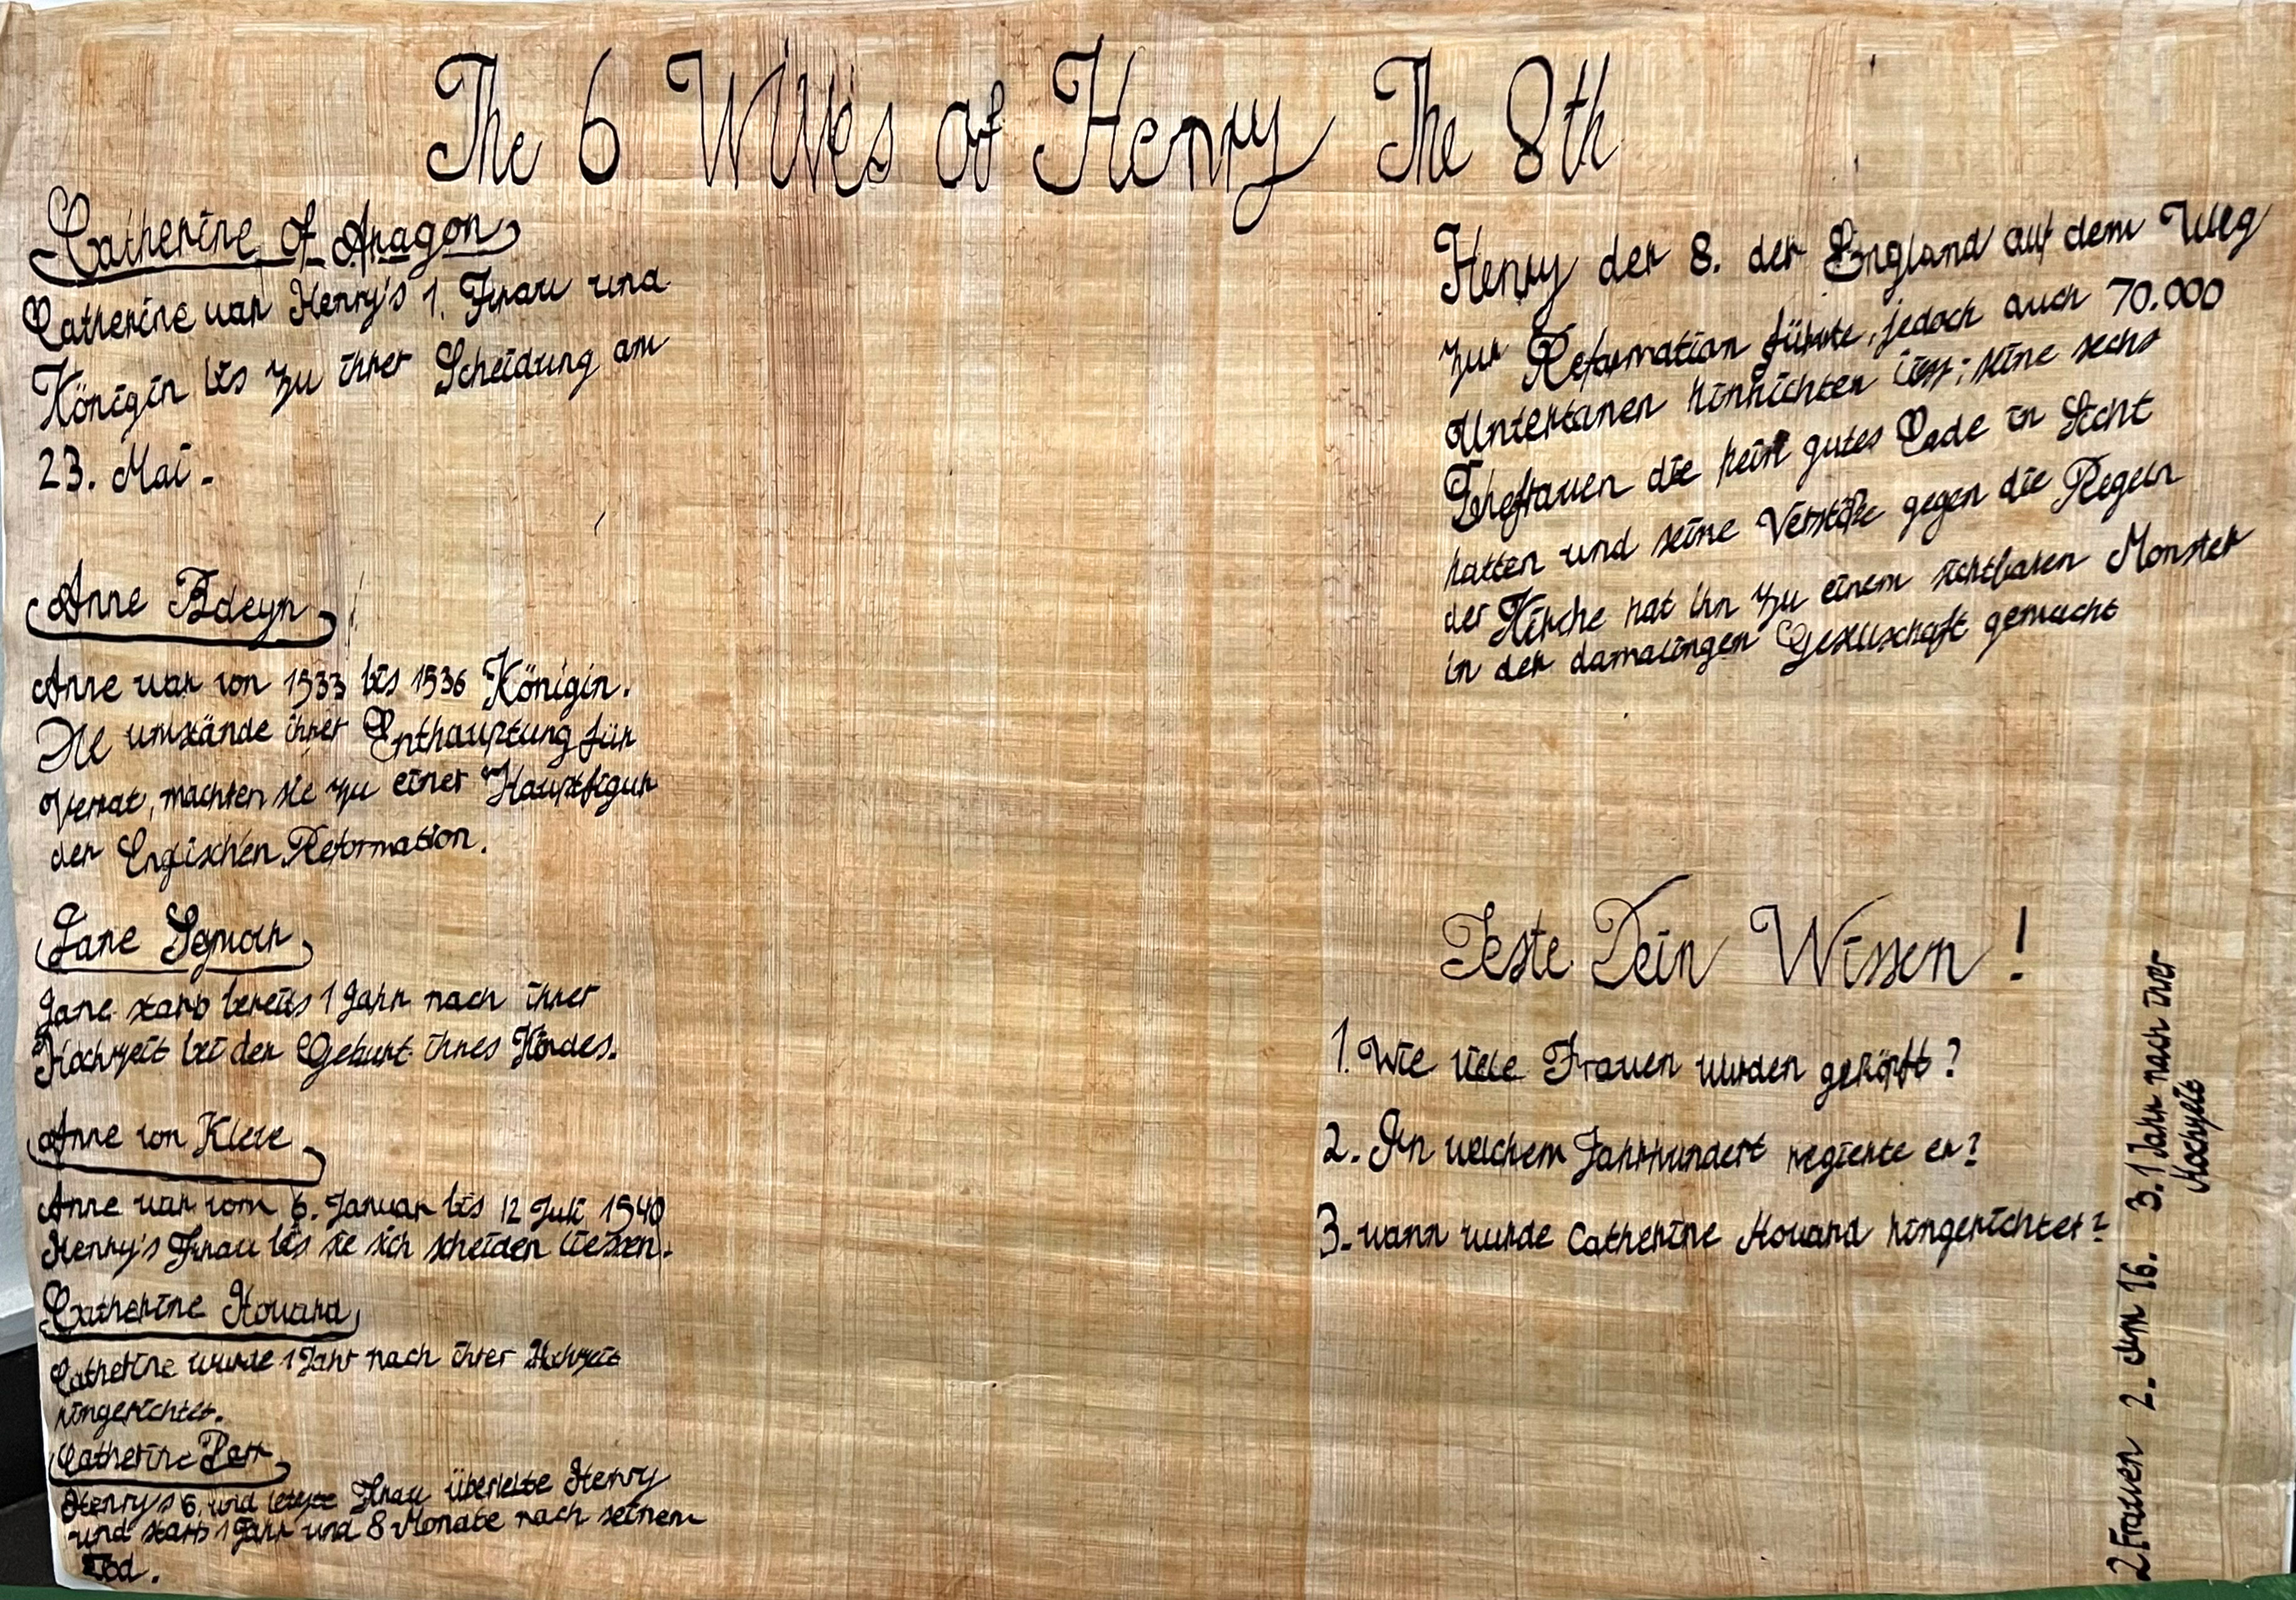 The 6 Wives of Henry The 8th
Catherine of Aragon
Catherine war Henry's 1. Frau und
Königin bis zu ihrer Scheidung am
23. Mai.
Anne Boleyn
Anne war von 1533 bis 1536 Königin.
Die umstände ihrer Enthauptung für
Verrat, machten sie zu einer Hauptfigur
der Englischen Reformation.
Jane Seymour
Jane starb bereits 1 Jahr nach ihrer
Hochzeit bei der Geburt ihres Kindes.
Anne von Kleve
Anne war vom 6. Januar bis 12 Juli 1540
Henry's Frau bis sie sich scheiden liessen.
Catherine Howard
Catherine wurde 1 Jahr nach ihrer Hochzeit
hingerichtet.
Catherine Parr
Henry's 6. und letzte Frau überlebte Henry
und starb 1 Jahr und 8 Monate nach seinem
Tod.
Henry der 8. der England auf dem Weg
zur Reformation führte, jedoch auch 70.000
Untertanen hinrichten liess; seine sechs
Ehefrauen die kein gutes Ende in Sicht
hatten und seine Verstöße gegen die Regeln
der Kirche hat ihn zu einem sichtbaren Monster
in der damalingen Gesellschaft gemacht
Teste Dein Wissen!
1. Wie viele Frauen wurden geköpft?
2. In welchem Jahrhundert regierte er?
3. wann wurde Catherine Howard hingerichtet?
2 Frauen 2. Im 16. 3. 1 Jahr nach ihrer
Hochzeit